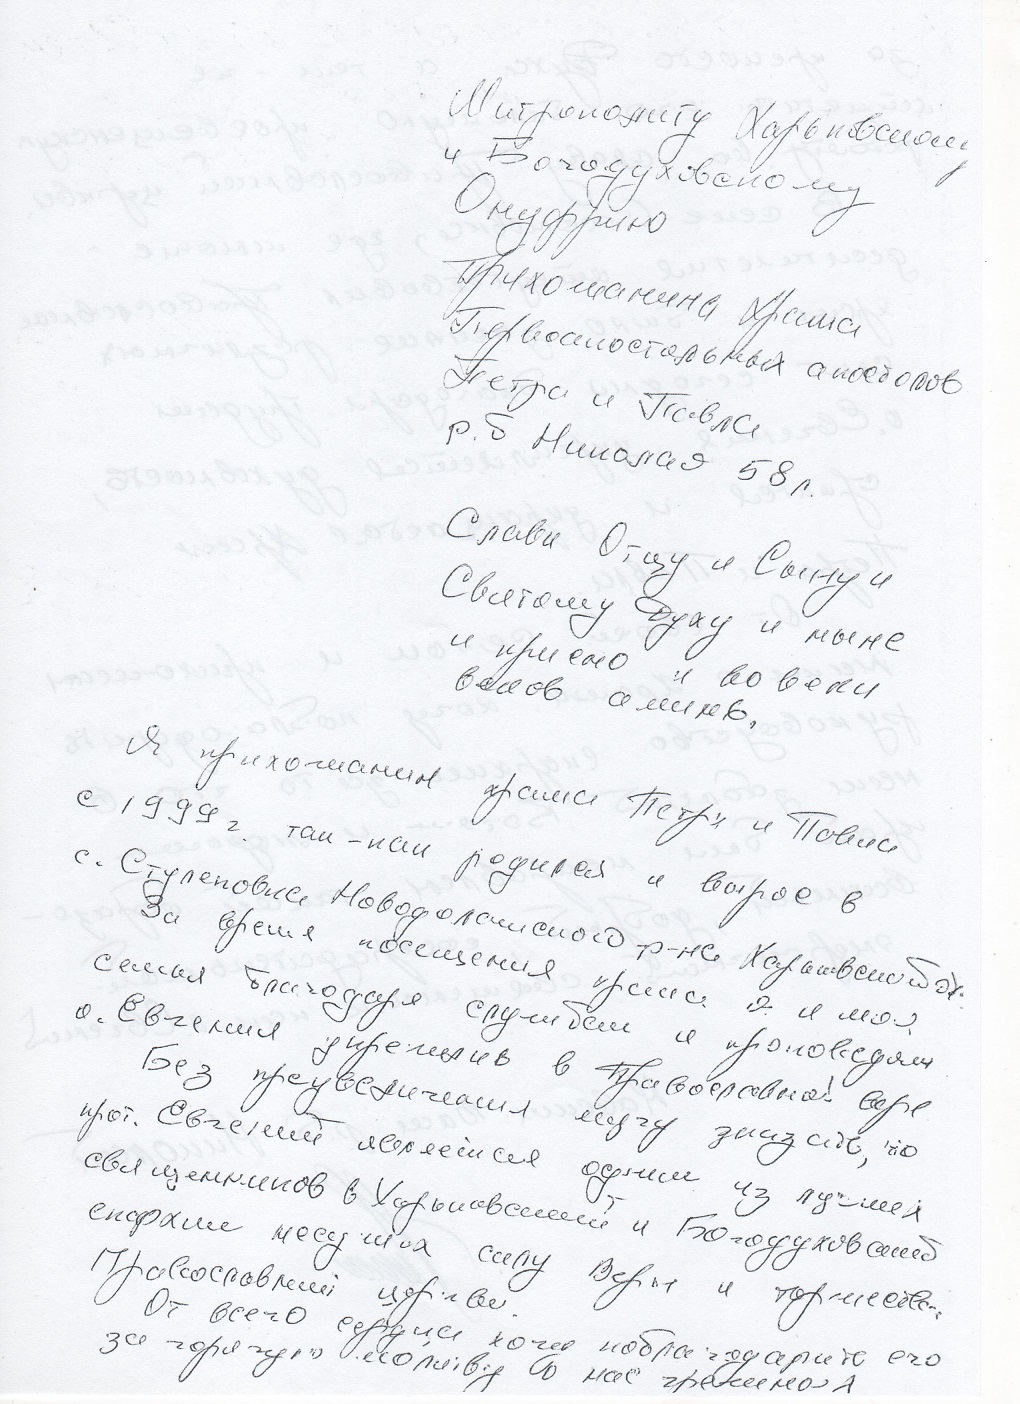 Митрополиту Харьковскому
и Богодуховскому
Онуфрию
Прихожанина Храма
Первоапостольных апостолов
Петра и Павла
р.б Николая 58 л.
Слава Отцу и Сыну и
Святому Духу и ныне
и присно и во веки
веков аминь.
Я прихожанин храма Петра и Павла
с 1999 г. так-как родился и вырос в
с. Ступеновка Новодолажского р-на Харьковской обл.
За время посещения храма я и моя
семья благодаря службам и проповедям
о. Евгения укрепив в Православной вере
Без преувеличения могу сказать, что
прот. Евгений является одним из лучших
священников в Харьковской и Богодуховской
епархии несущих силу Веры и торжества
Православной церкви.
От всего сердца хочу поблагодарить его
за горячую молитву о нас грешных